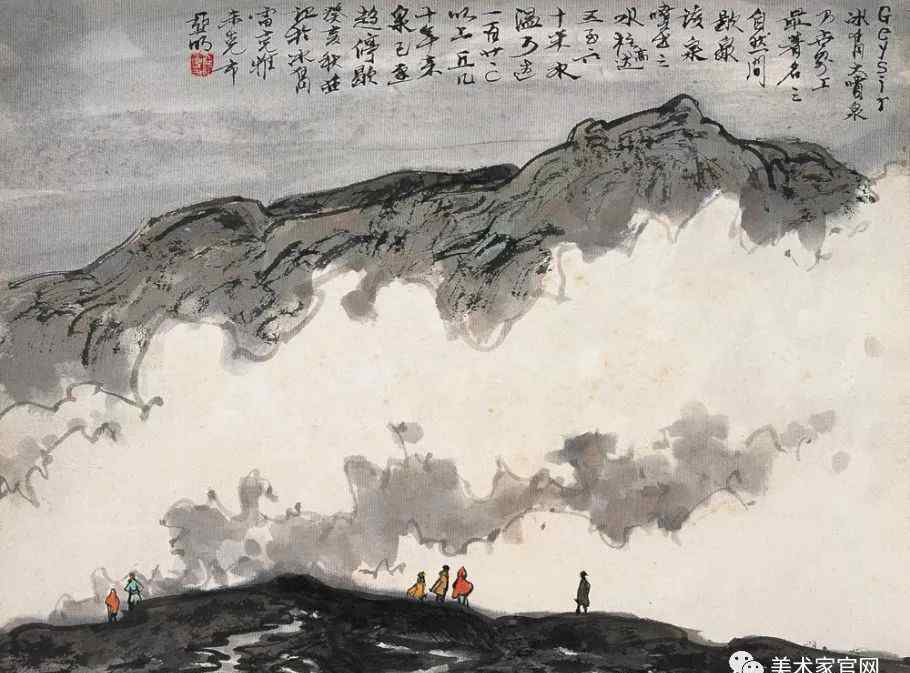 GGYSir
冰岛大喷泉
乃世界上
最著名之
自然间
歇泉
该泉
喷出之
水柱高达
五至六
十米水
温可达
一百廿二
以上近几
十年来
泉已逐
趋停歇
癸亥秋
记於冰岛
雷克雅
未克市
亚明
美术家官网